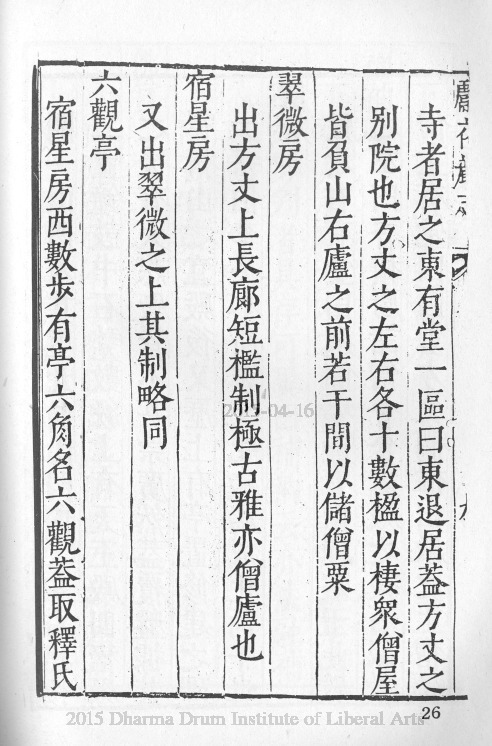 寺者居之東有堂一區曰東退居葢方丈之
别院也方丈之左右各十數楹以棲衆僧屋
皆負山右廬之前若干間以儲僧粟
翠微房
出方丈上長廊短檻制極古雅亦僧廬也
宿星房
又出翠微之上其制略同
六觀亭
宿星房西數歩有亭六角名六觀葢取釋氏
26
2015 Dharma Drum Institute of Liberal Arts